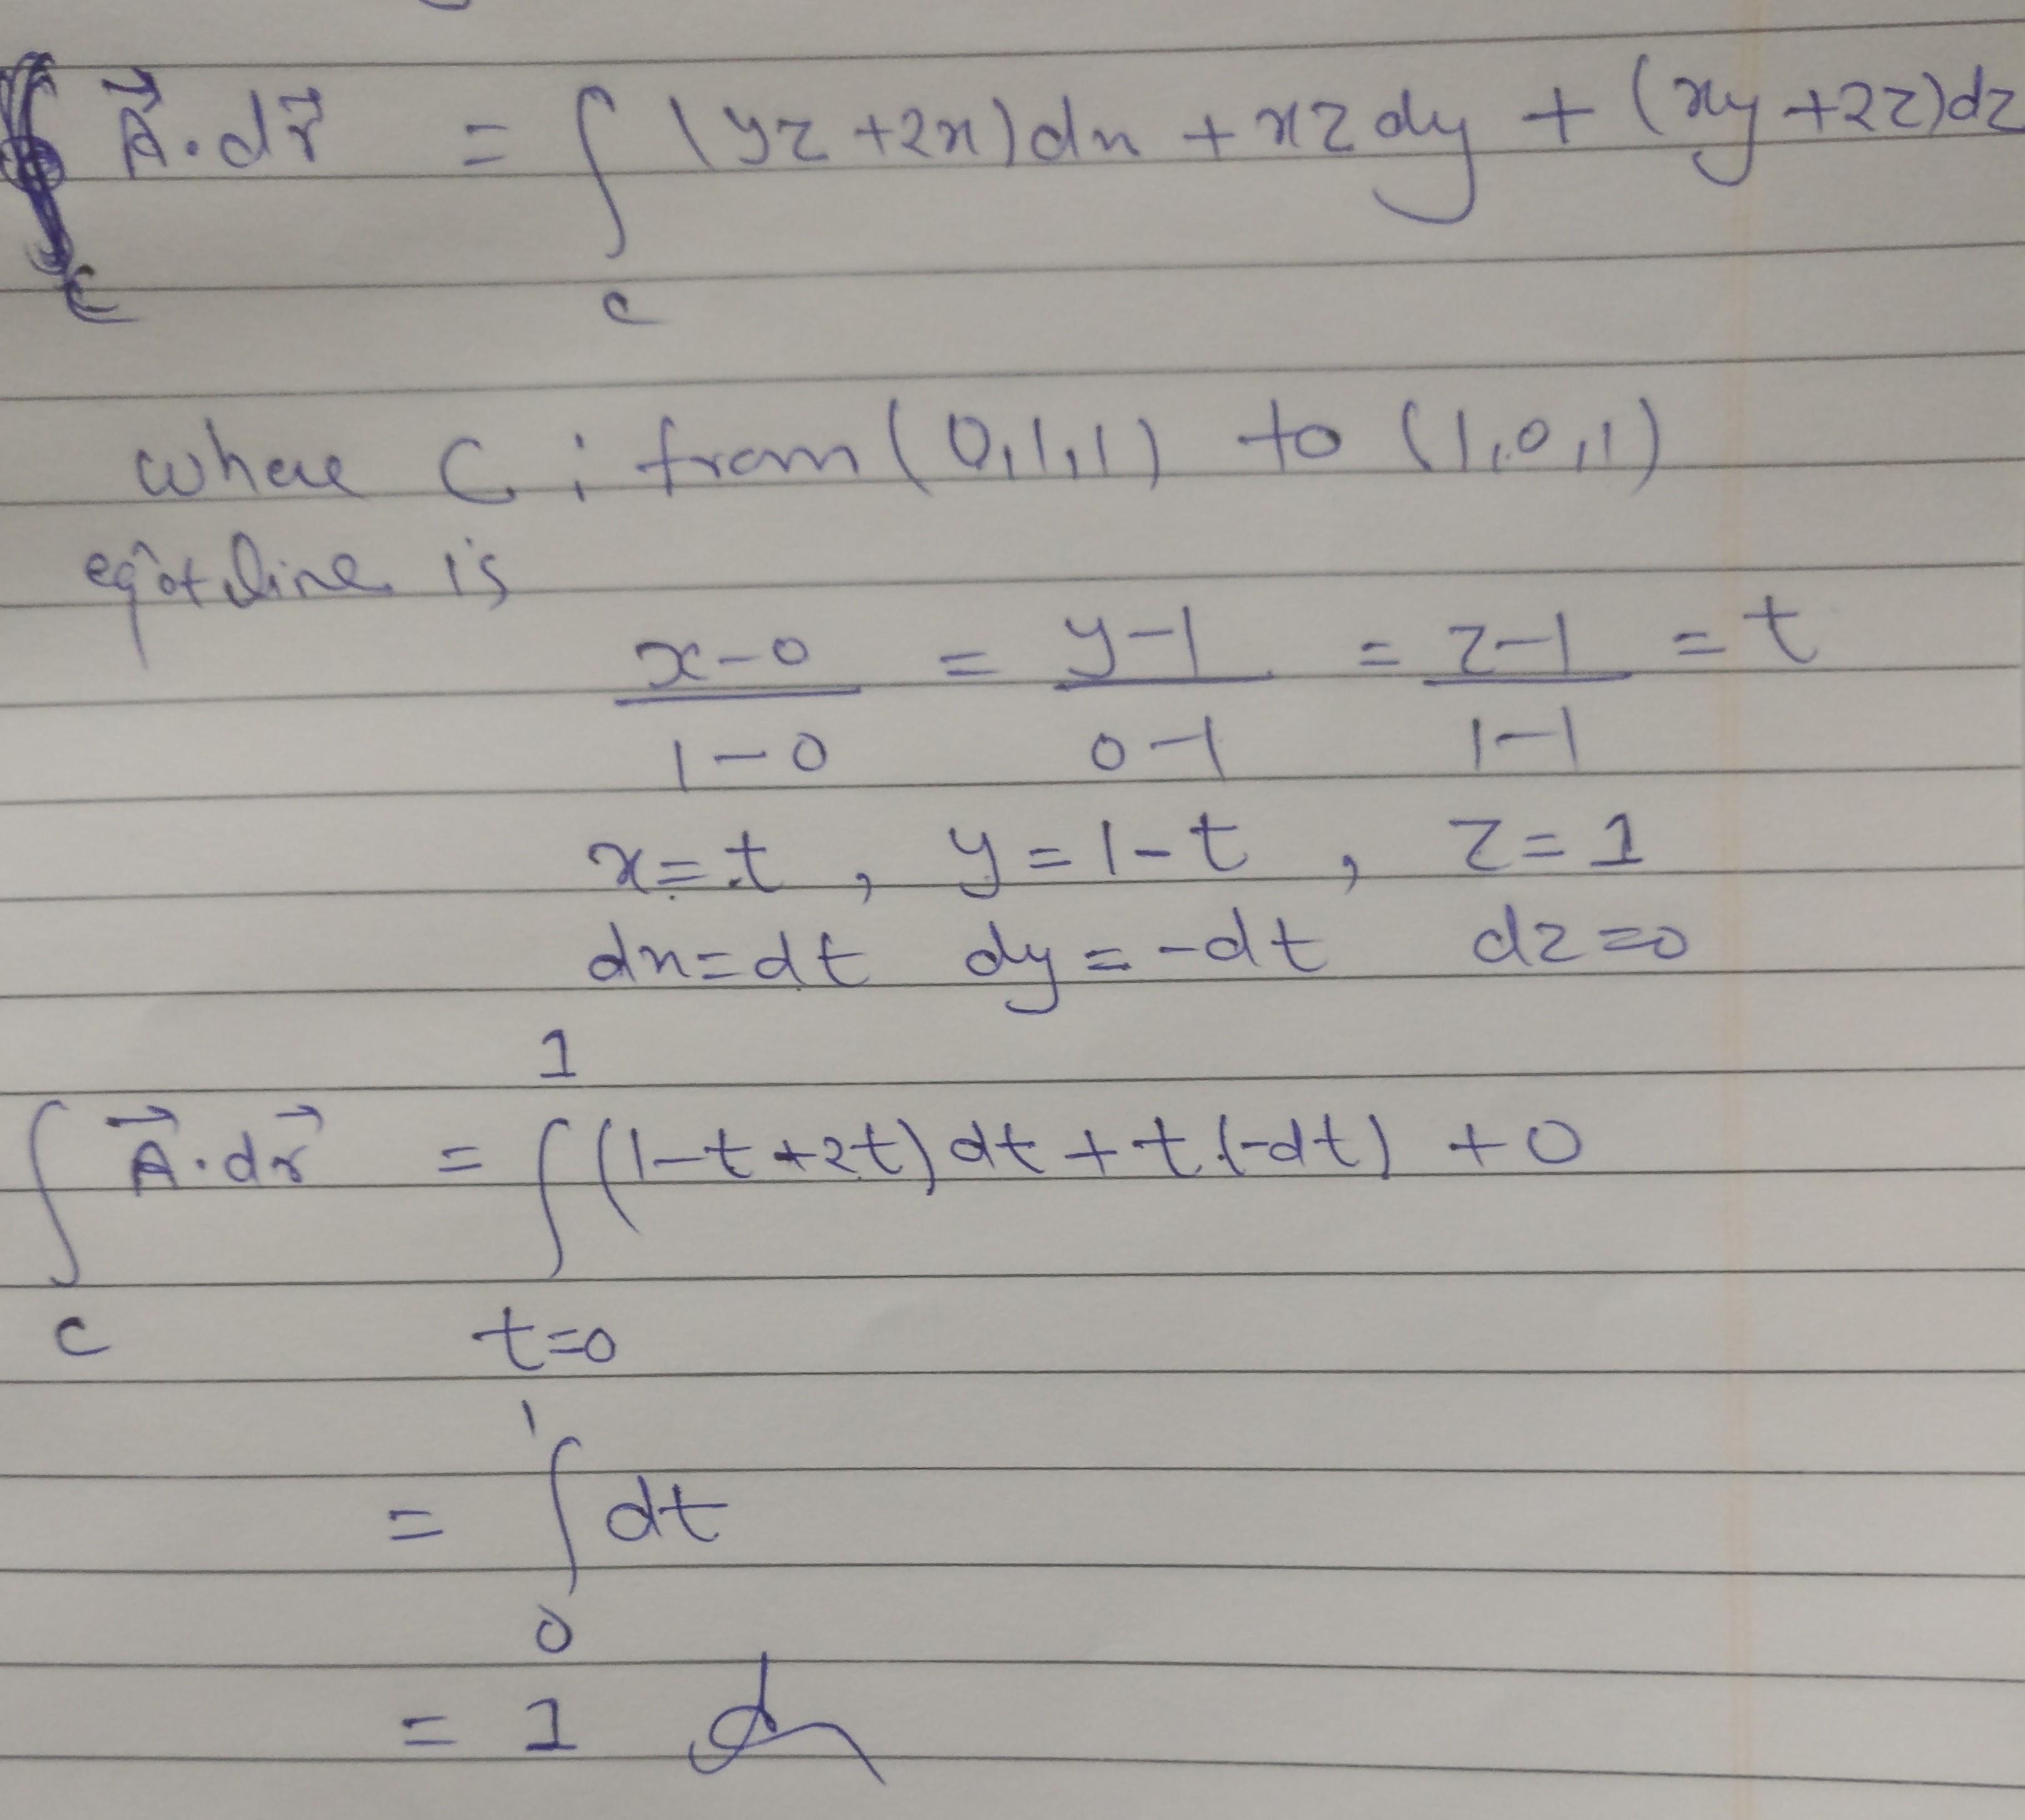 ∫ A⃗·dr⃗ = ∫ (yz+2x)dx + xz dy + (xy+2z)dz
c c
where C : from (0,1,1) to (1,0,1)
eqⁿ of line is
x-0 = y-1 = z-1 = t
1-0 0-1 1-1
x=t , y=1-t , z=1
dx=dt dy=-dt dz=0
1
∫ A⃗·dr⃗ = ∫ (1-t+2t)dt + t.(-dt) + 0
c t=0
1
= ∫ dt
0
= 1